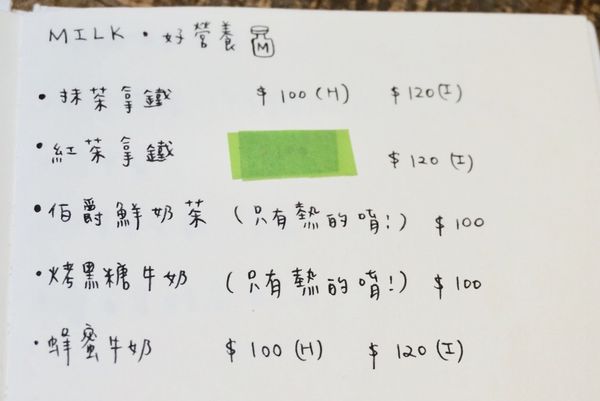 MILK · 好營養 M
• 抹茶拿鐵 $100(H) $120(I)
• 紅茶拿鐵 $120(I)
• 伯爵鮮奶茶 (只有熱的唷!) $100
• 烤黑糖牛奶 (只有熱的唷!) $100
• 蜂蜜牛奶 $100(H) $120(I)